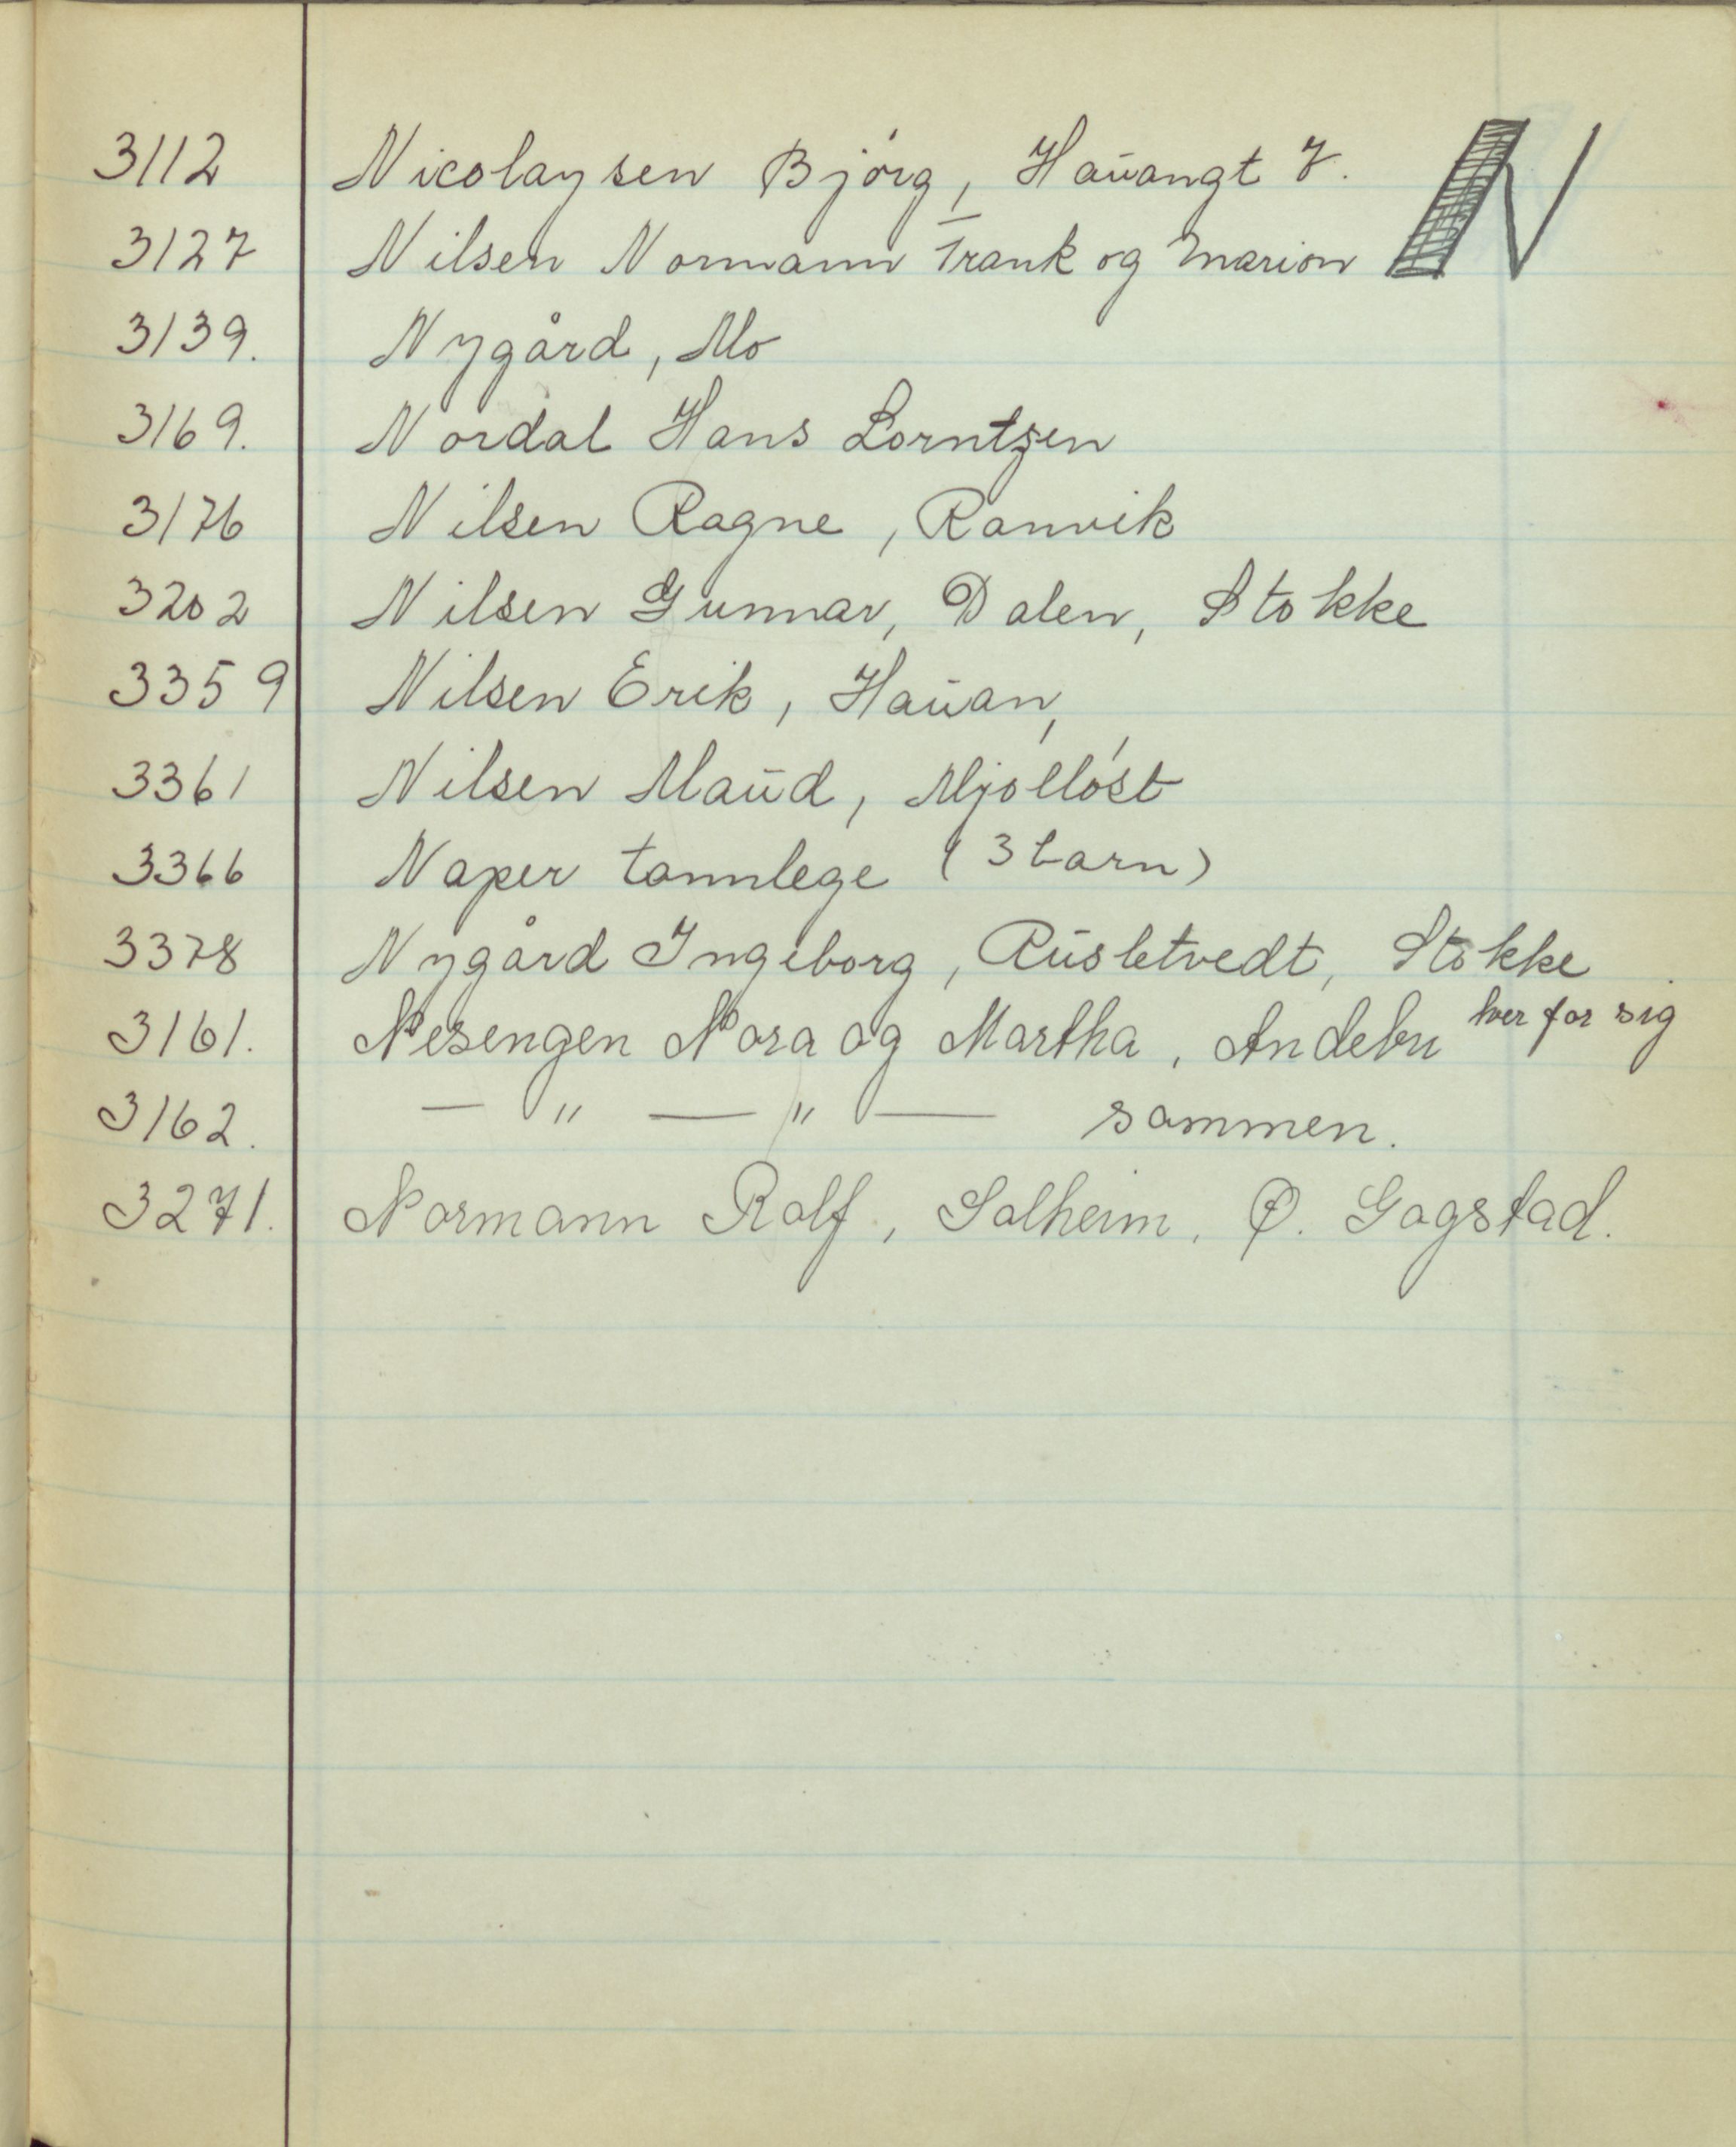 N
3112 Nicolaysen Bjórg, Hauangt 7.
3127 Nilsen Normann Frank og Marion
3139. Nygård, Mo
3169. Nordal Hans Lorntzen
3176 Nilsen Ragne, Ranvik
3202 Nilsen Gunnar, Dalen, Stokke
3359 Nilsen Erik, Hauan,
3361 Nilsen Maud, Mjølløst
3366 Naper tannlege (3 barn)
3378 Nygård Ingeborg, Rusletvedt, Stokke
3161. Nesengen Nora og Martha, Andebu hver for sig
3162. — " — " — sammen.
3271. Normann Rolf, Solheim, Ø. Gogstad.